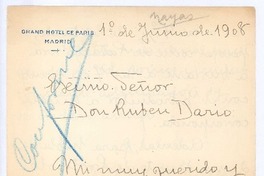 Nayas
GRAND HOTEL DE PARIS
MADRID
1º de Junio de 1908
Conforme
Excmo. Señor
Don Ruben Dario
Mi muy querido y